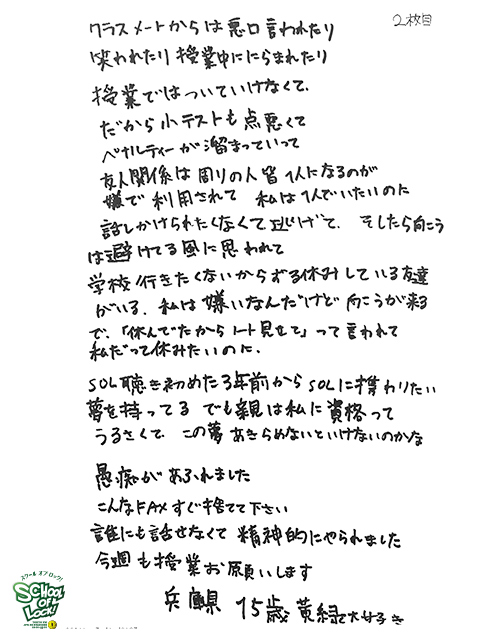 2枚目
クラスメートからは悪口言われたり
笑われたり授業中ににらまれたり
授業ではついていけなくて、
だから小テストも点悪くて
ペナルティーが溜まっていって
友人関係は周りの人皆1人になるのが
嫌で利用されて 私は1人でいたいのに
話しかけられたくなくて逃げて、そしたら向こう
は避けてる風に思われて
学校行きたくないからずる休みしている友達
がいる、私は嫌いなんだけど向こうが来る
で、「休んでたからノート見せて」って言われて
私だって休みたいのに、
SOL聴き初めた3年前からSOLに携わりたい
夢を持ってる でも親は私に資格って
うるさくて、この夢あきらめないといけないのかな
愚痴があふれました
こんなFAXすぐ捨てて下さい
誰にも話せなくて精神的にやられました
今週も授業お願いします
兵庫県 15歳 黄緑大好き
スクール オブ ロック!
SCHOOL OF LOCK!